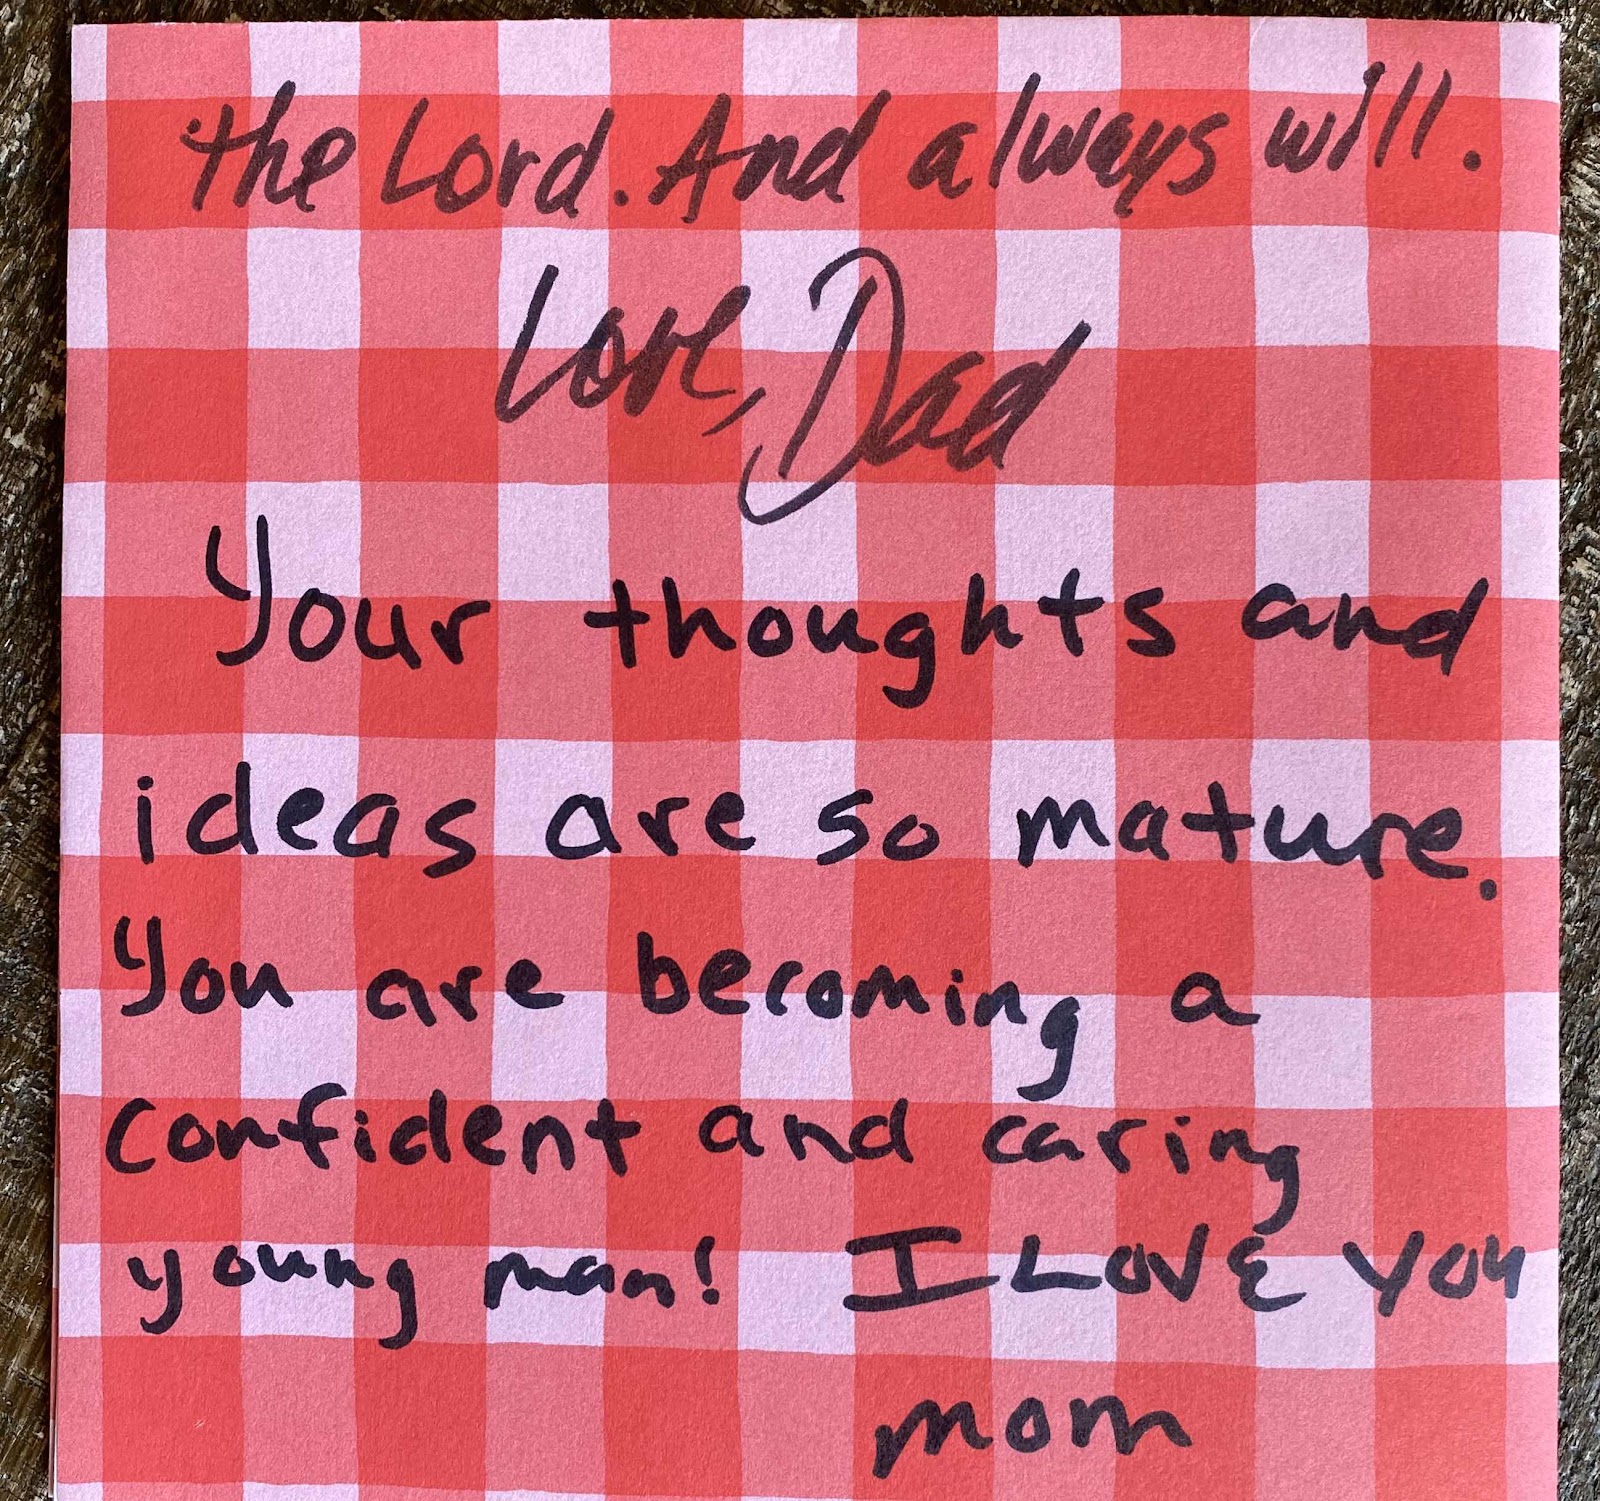 the Lord. And always will.
Love, Dad
Your thoughts and
ideas are so mature.
You are becoming a
confident and caring
young man! I LOVE YOU
mom